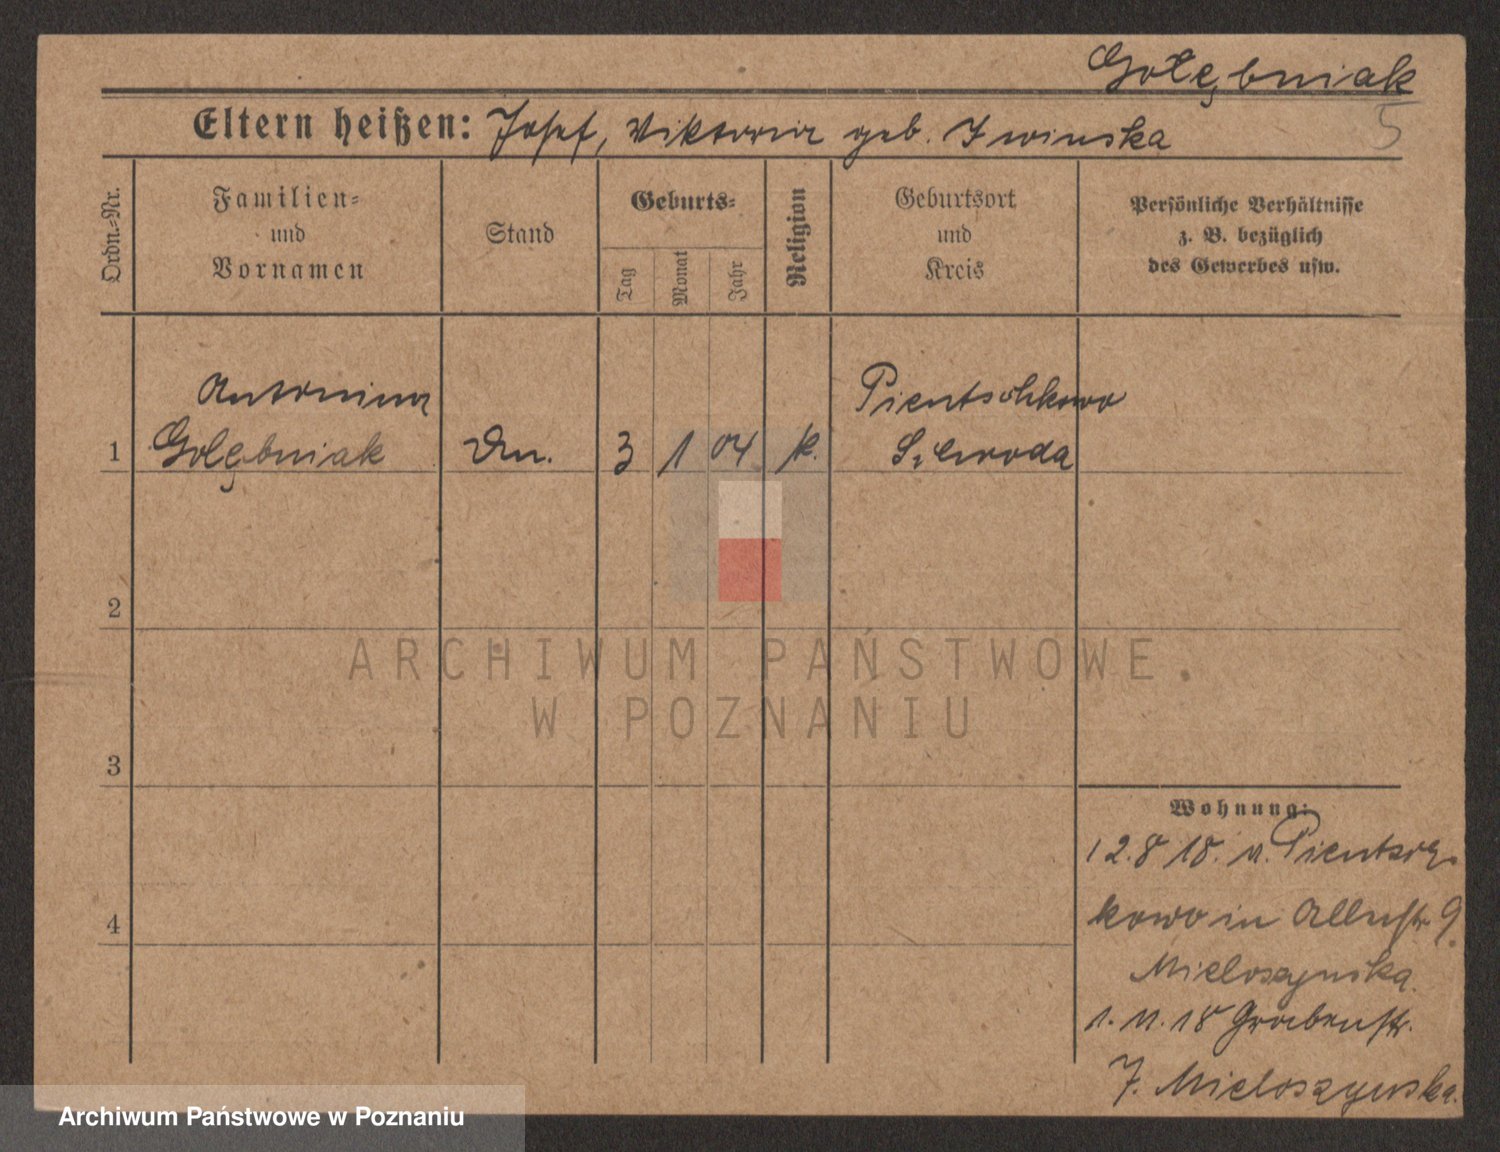 Gołębniak
Eltern heißen: Josef, Viktoria geb. Iwinska
5
Ordn.-Nr.
Familien-
und
Vornamen
Stand
Geburts-
Tag
Monat
Jahr
Religion
Geburtsort
und
Kreis
Persönliche Verhältnisse
z. B. bezüglich
des Gewerbes usw.
Antonina
Pientschkowo
1 Golębniak 3 1 04 k. Schroda
2
ARCHIWUM PAŃSTWOWE
W POZNANIU
3
Wohnung:
12.8 18. v. Pientsch-
kowo in 9.
4
Mieloszynska.
1. 11. 18 Grabenstr.
Mieloszynska.
Archiwum Państwowe w Poznaniu